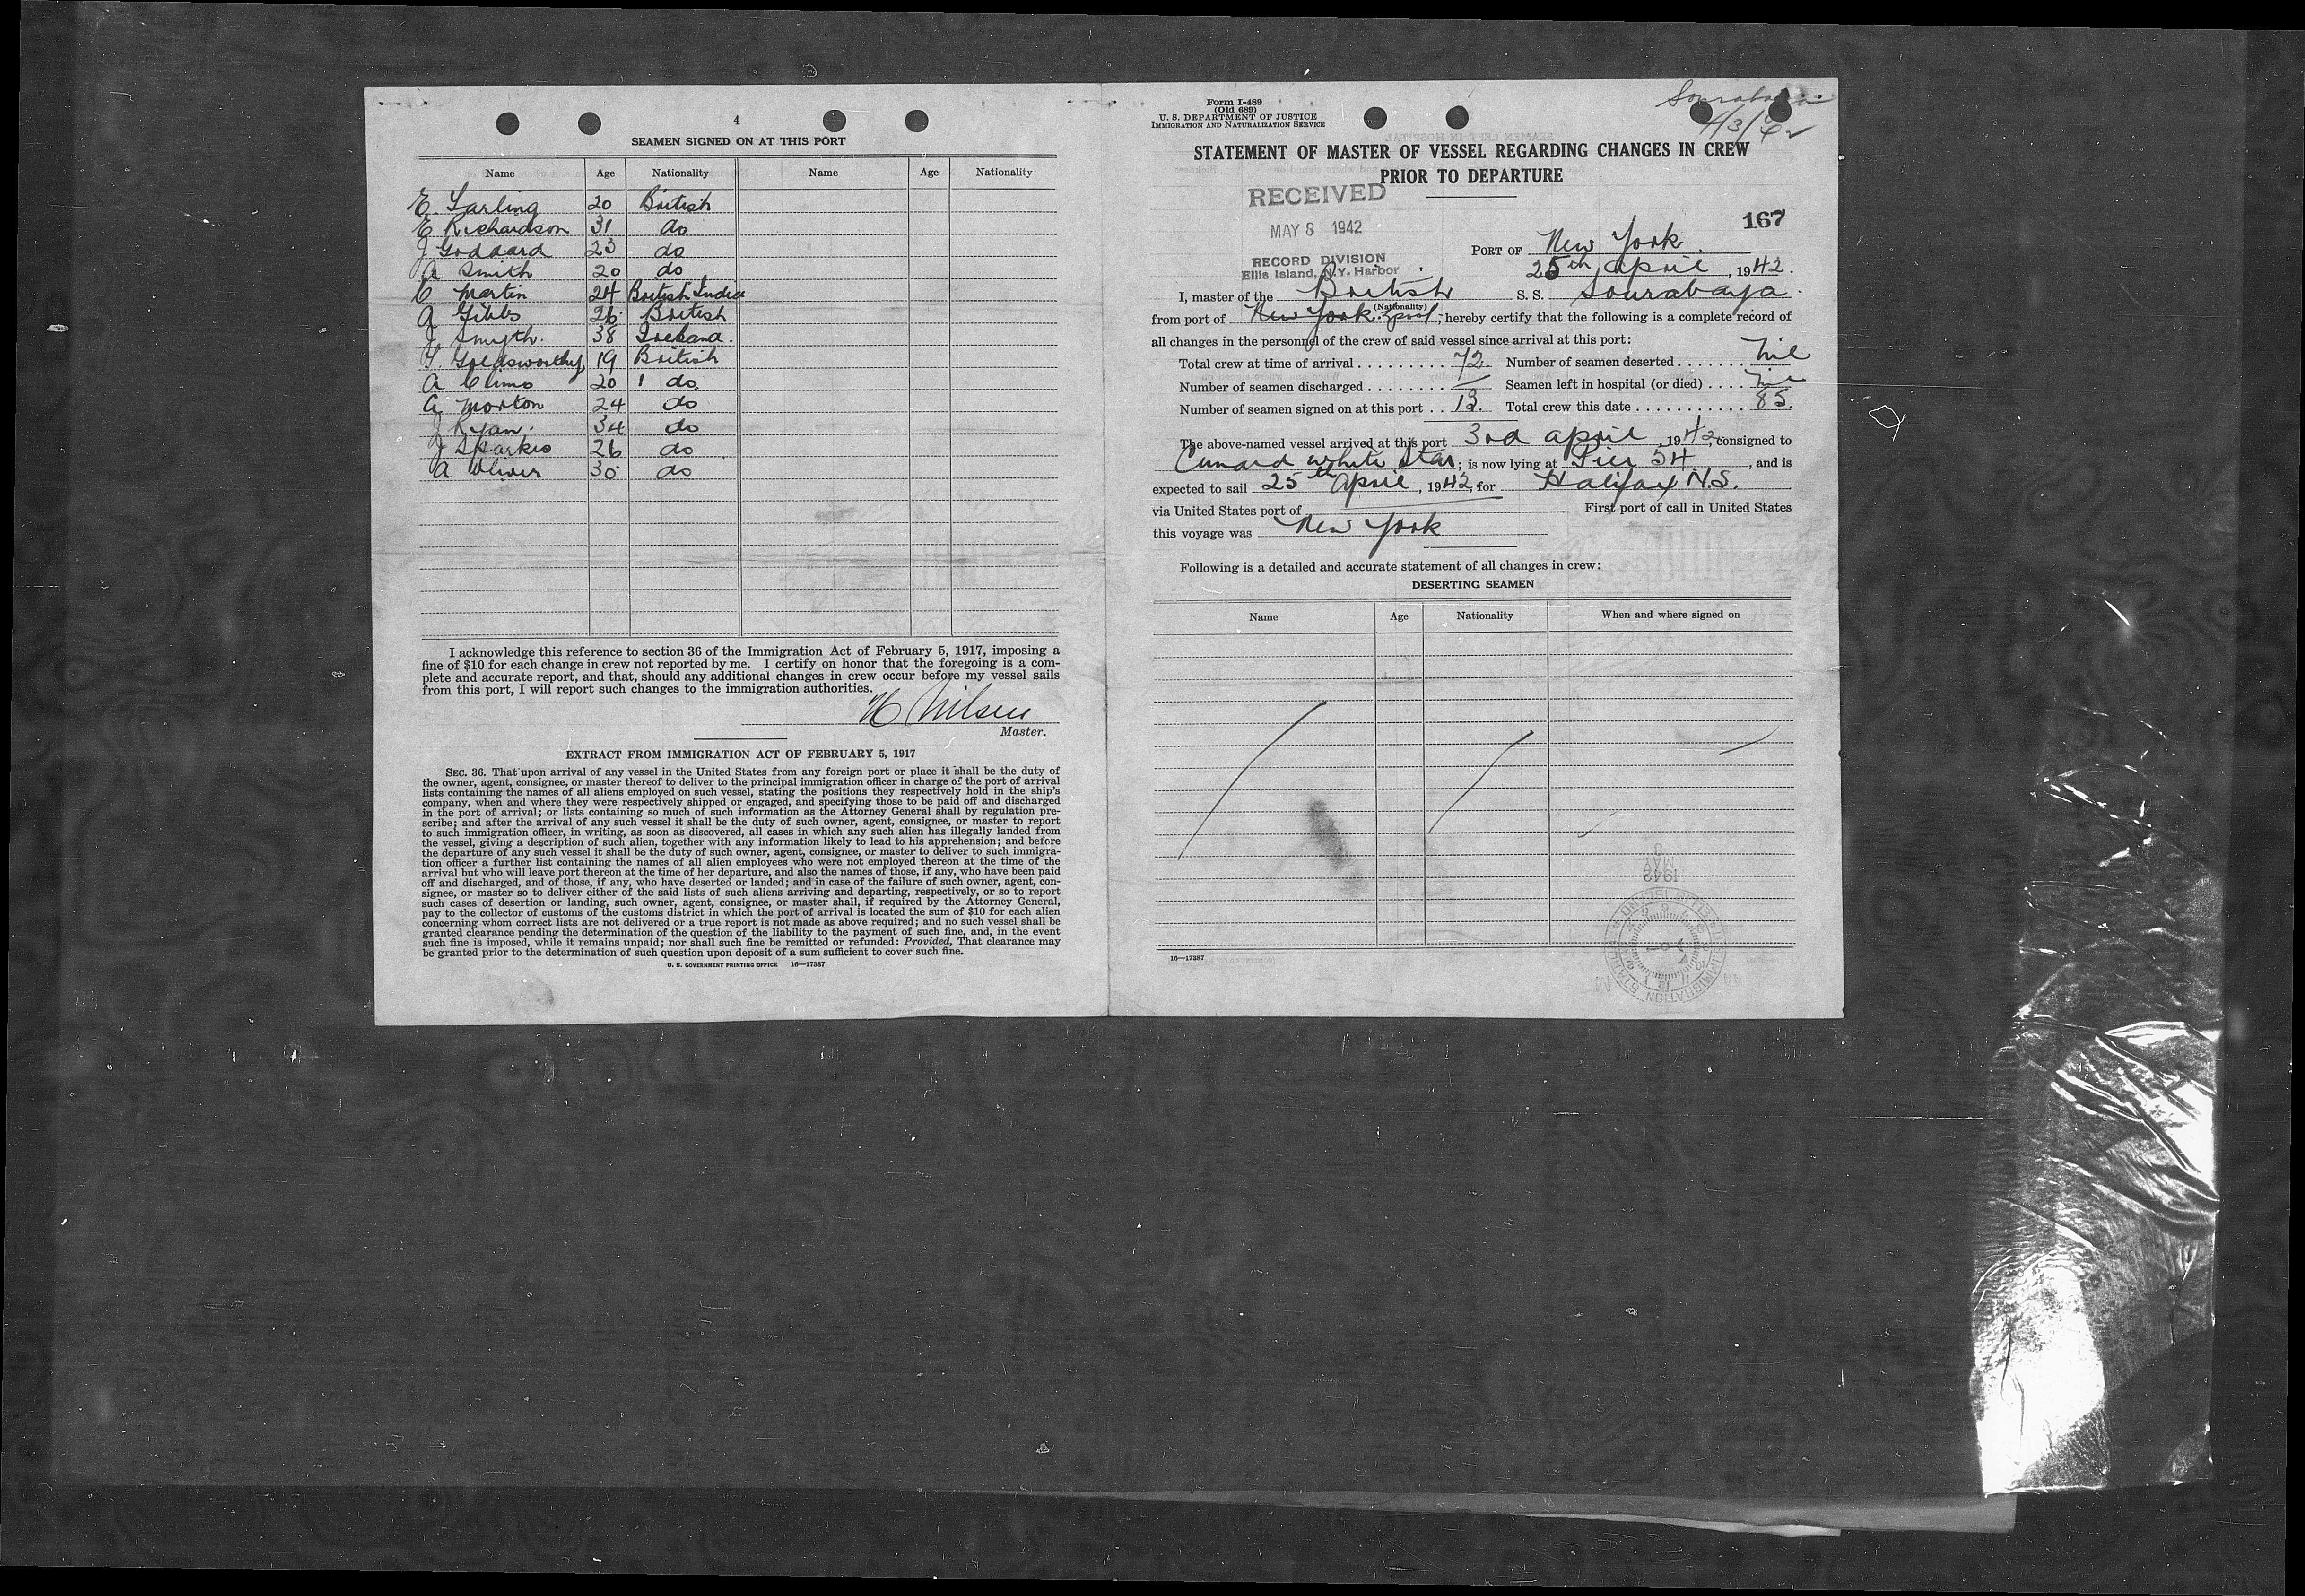 4
SEAMEN SIGNED ON AT THIS PORT
Name Age Nationality Name Age Nationality
E. Larling 20 British
E Richardson 31 do
J Goddard 23 do
A Smith 20 do
C Martin 24 British India
A Gibbs 26 British
J Smyth. 38 Ireland.
T. Goldsworthy 19 British
A Climo 20 do.
G Morton 24 do
J Ryan. 34 do
J Sparkes 26 do
A Oliver 30 do
I acknowledge this reference to section 36 of the Immigration Act of February 5, 1917, imposing a
fine of $10 for each change in crew not reported by me. I certify on honor that the foregoing is a com-
plete and accurate report, and that, should any additional changes in crew occur before my vessel sails
from this port, I will report such changes to the immigration authorities.
H Nilsen
Master.
EXTRACT FROM IMMIGRATION ACT OF FEBRUARY 5, 1917
SEC. 36. That upon arrival of any vessel in the United States from any foreign port or place it shall be the duty of
the owner, agent, consignee, or master thereof to deliver to the principal immigration officer in charge of the port of arrival
lists containing the names of all aliens employed on such vessel, stating the positions they respectively hold in the ship's
company, when and where they were respectively shipped or engaged, and specifying those to be paid off and discharged
in the port of arrival; or lists containing so much of such information as the Attorney General shall by regulation pre-
scribe; and after the arrival of any such vessel it shall be the duty of such owner, agent, consignee, or master to report
to such immigration officer, in writing, as soon as discovered, all cases in which any such alien has illegally landed from
the vessel, giving a description of such alien, together with any information likely to lead to his apprehension; and before
the departure of any such vessel it shall be the duty of such owner, agent, consignee, or master to deliver to such immigra-
tion officer a further list containing the names of all alien employees who were not employed thereon at the time of the
arrival but who will leave port thereon at the time of her departure, and also the names of those, if any, who have been paid
off and discharged, and of those, if any, who have deserted or landed; and in case of the failure of such owner, agent, con-
signee, or master so to deliver either of the said lists of such aliens arriving and departing, respectively, or so to report
such cases of desertion or landing, such owner, agent, consignee, or master shall, if required by the Attorney General,
pay to the collector of customs of the customs district in which the port of arrival is located the sum of $10 for each alien
concerning whom correct lists are not delivered or a true report is not made as above required; and no such vessel shall be
granted clearance pending the determination of the question of the liability to the payment of such fine, and, in the event
such fine is imposed, while it remains unpaid; nor shall such fine be remitted or refunded: Provided, That clearance may
be granted prior to the determination of such question upon deposit of a sum sufficient to cover such fine.
U. S. GOVERNMENT PRINTING OFFICE 16—17387
Form I-489
(Old 689)
U. S. DEPARTMENT OF JUSTICE
IMMIGRATION AND NATURALIZATION SERVICE
Sourabaya
4/3/42
STATEMENT OF MASTER OF VESSEL REGARDING CHANGES IN CREW
PRIOR TO DEPARTURE
RECEIVED
MAY 8 1942
RECORD DIVISION
Ellis Island, N.Y. Harbor
167
PORT OF New York.
25th April, 1942.
I, master of the British S. S. Sourabaya.
(Nationality)
from port of New York, hereby certify that the following is a complete record of
all changes in the personnel of the crew of said vessel since arrival at this port:
Total crew at time of arrival 72. Number of seamen deserted Nil
Number of seamen discharged — Seamen left in hospital (or died) Nil
Number of seamen signed on at this port 13. Total crew this date 85.
The above-named vessel arrived at this port 3rd April, 1942, consigned to
Cunard White Star; is now lying at Pier 54, and is
expected to sail 25th April, 1942, for Halifax N.S.
via United States port of First port of call in United States
this voyage was New York
Following is a detailed and accurate statement of all changes in crew:
DESERTING SEAMEN
Name Age Nationality When and where signed on
16—17387